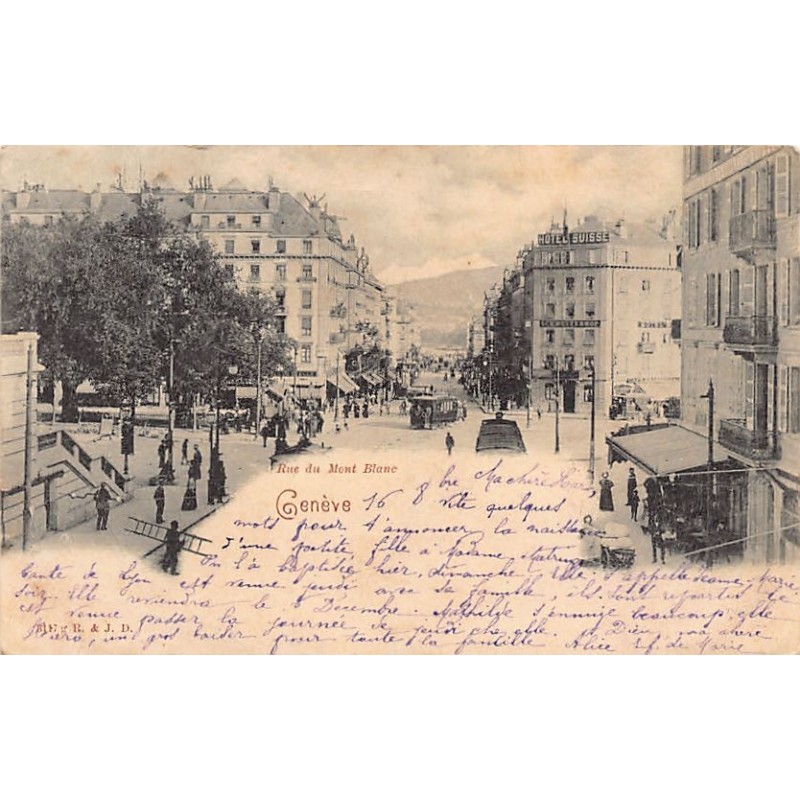 HÔTEL SUISSE
Rue du Mont Blanc
Genève 16 8bre Ma chère
Vite quelques
mots pour t'annoncer la naissance
d'une petite fille à Madame
On l'a baptisée hier, dimanche. Elle s'appelle Jeanne-Marie
Tante de Lyon est venue jeudi avec sa famille, ils sont repartis le
soir. Elle reviendra le 8 Décembre. Mathilde s'ennuie beaucoup, elle
est venue passer la journée de jeudi chez elle. A Dieu,
un gros baiser pour toute la famille Alice E. f. de Marie
R. & J. D.